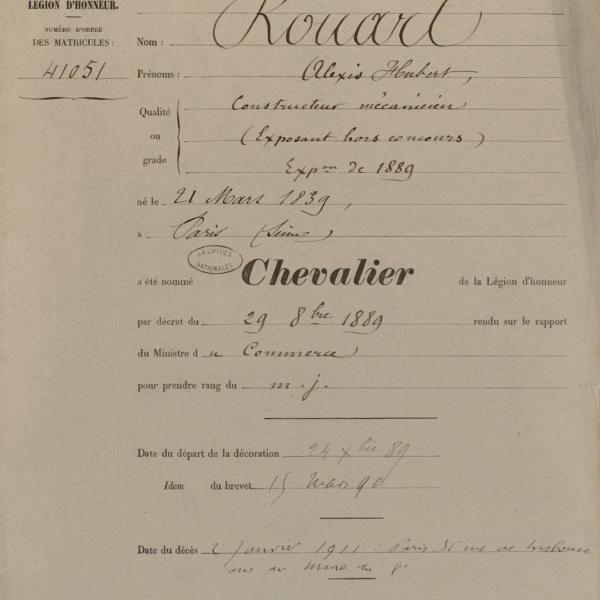 LÉGION D'HONNEUR.
NUMÉRO D'ORDRE
DES MATRICULES :
41051
Nom : Rouart
Prénoms : Alexis Hubert,
Qualité ou grade
Constructeur mécanicien
(Exposant hors concours)
Expon de 1889
né le 21 Mars 1839,
à Paris (Seine)
ARCHIVES NATIONALES
a été nommé Chevalier de la Légion d'honneur
par décret du 29 8bre 1889 rendu sur le rapport
du Ministre du Commerce
pour prendre rang du m. j.
Date du départ de la décoration 24 Xbre 89
Idem du brevet 15 Mars 90
Date du décès 2 Janvier 1911 : Paris 36 rue de Lisbonne